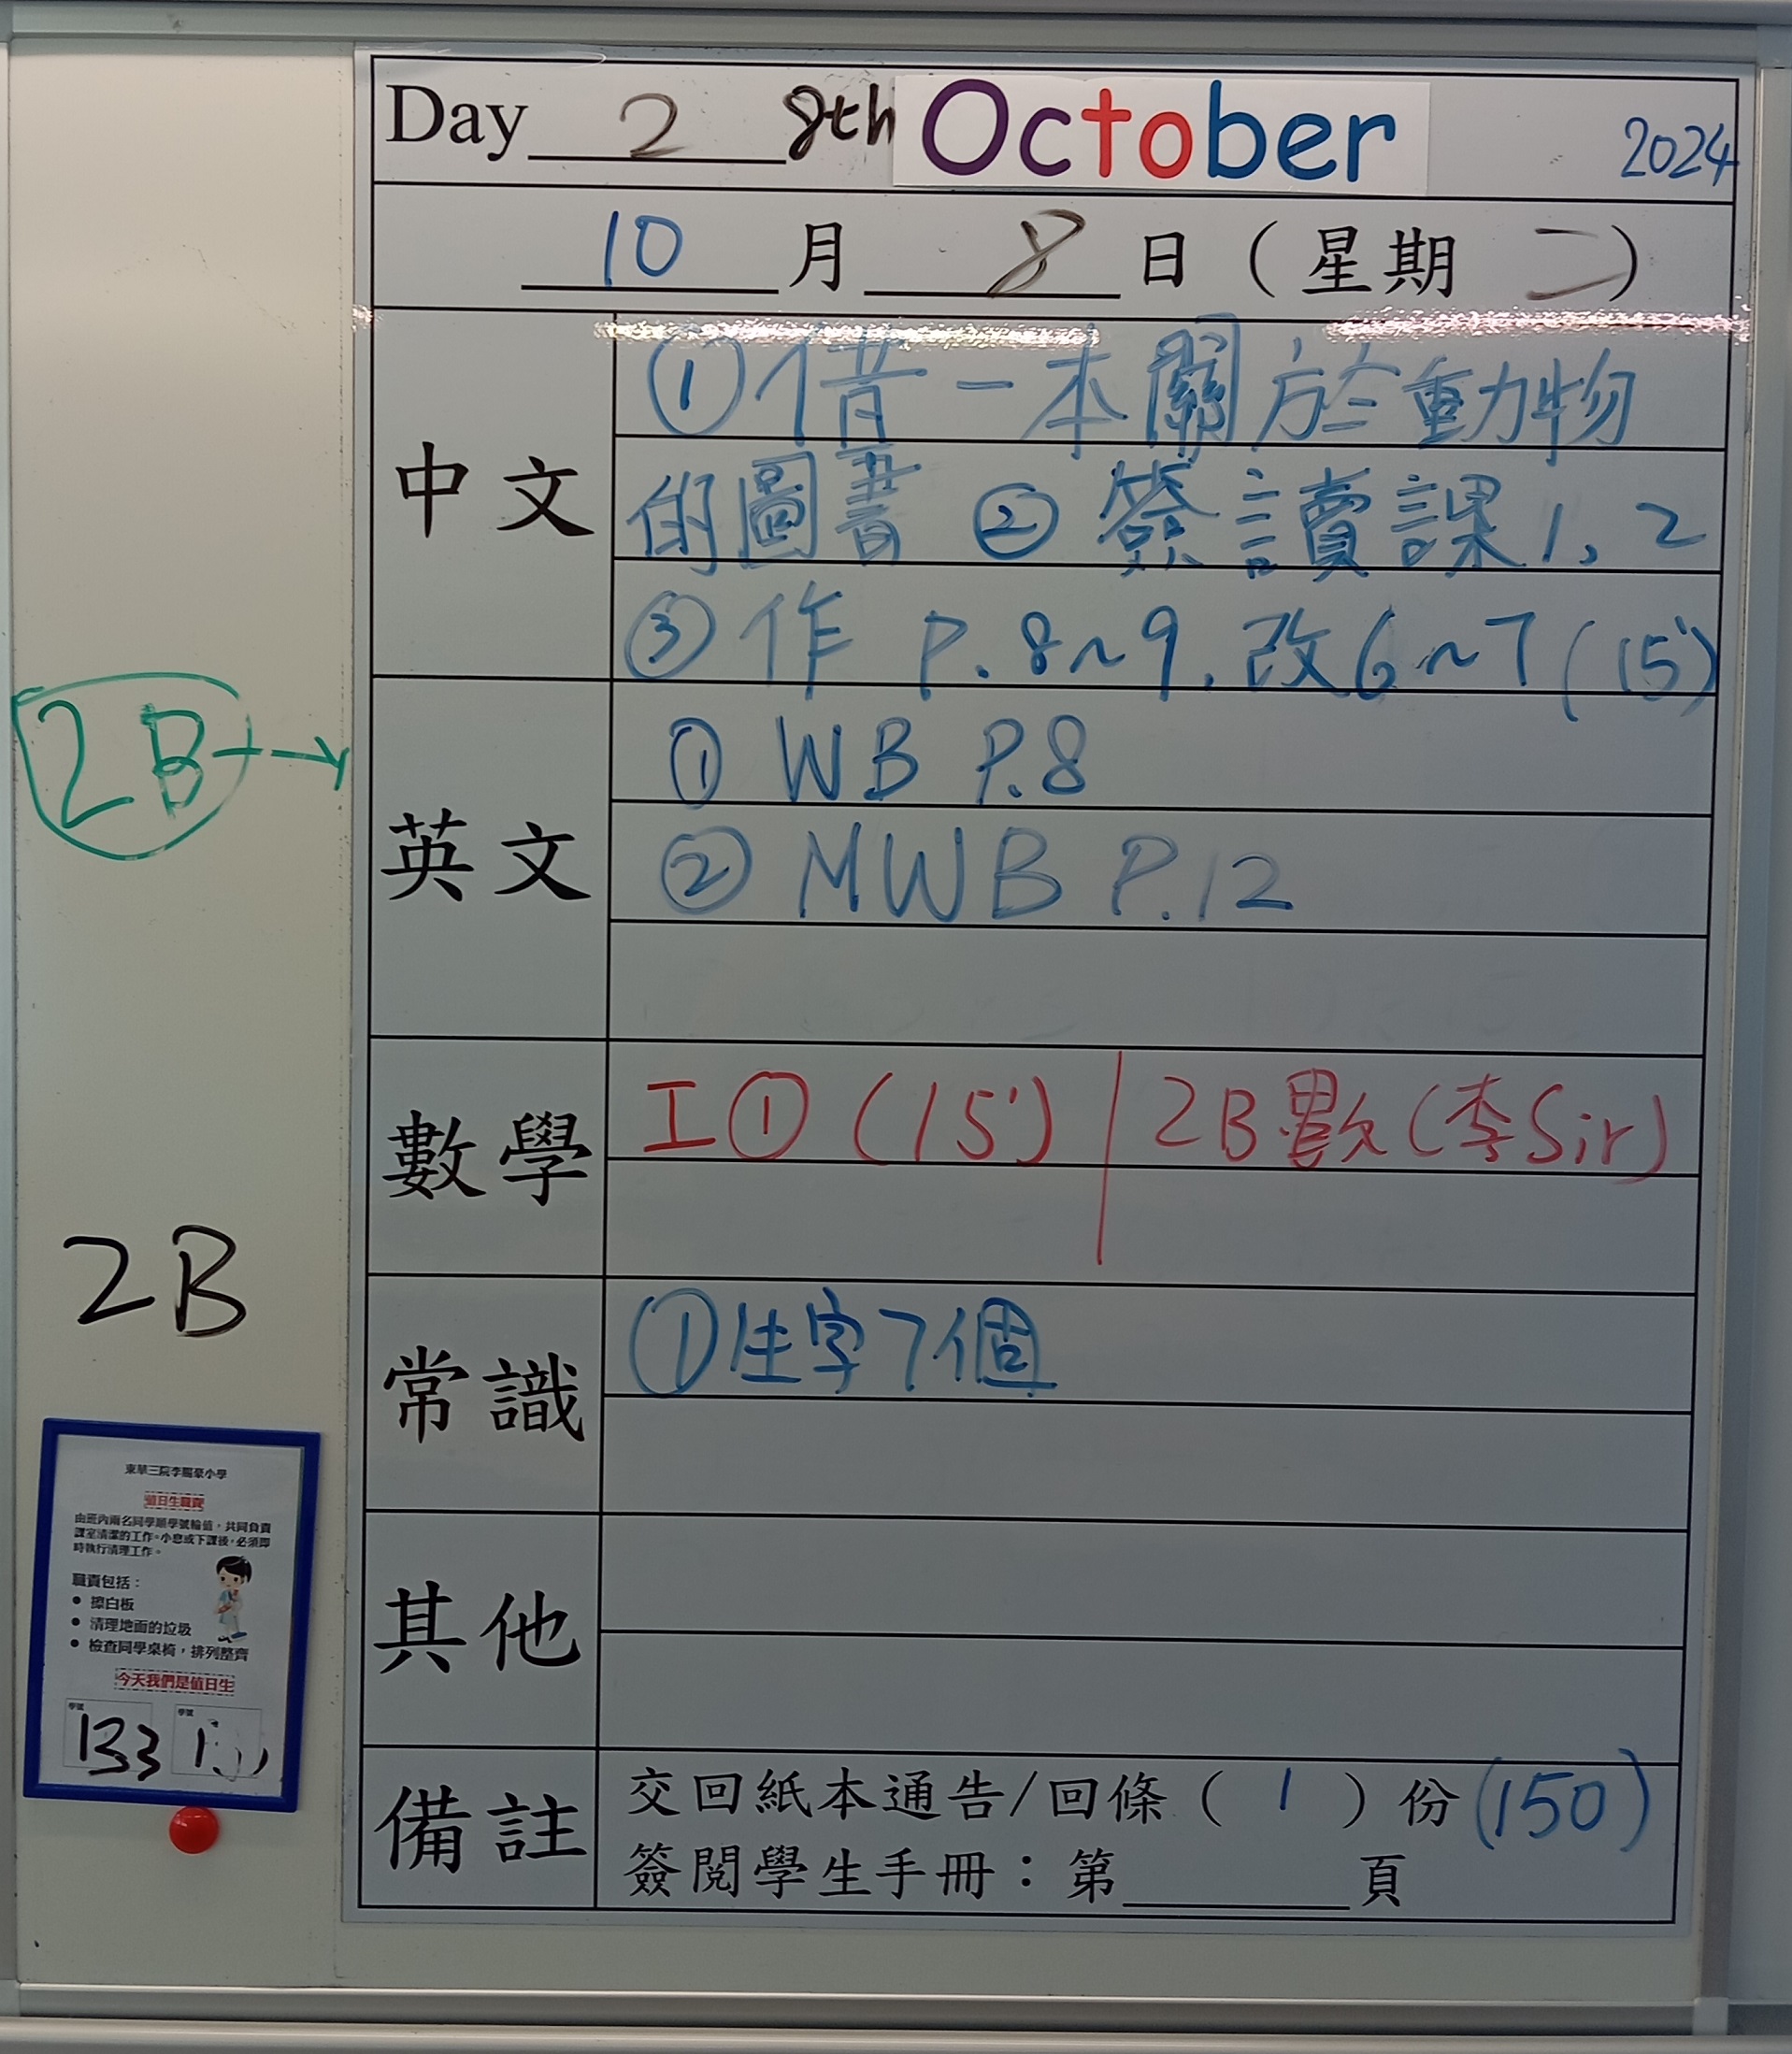 Day 2 8th October 2024
10 月 8 日 ( 星期 二 )
中文
①借一本關於動物
的圖書 ② 簽讀課1, 2
③作 P.8~9, 改6~7 (15')
英文
① WB P.8
② MWB P.12
數學
工① (15') | 2B數(李Sir)
常識
①生字7個
其他
備註
交回紙本通告/回條 ( 1 ) 份 (150)
簽閱學生手冊：第 頁
2B
2B
東華三院李賜豪小學
值日生職責
由班內兩名同學順學號輪值，共同負責
課室清潔的工作。小息或下課後，必須即
時執行清理工作。
職責包括：
● 擦白板
● 清理地面的垃圾
● 檢查同學桌椅，排列整齊
今天我們是值日生
學號 學號